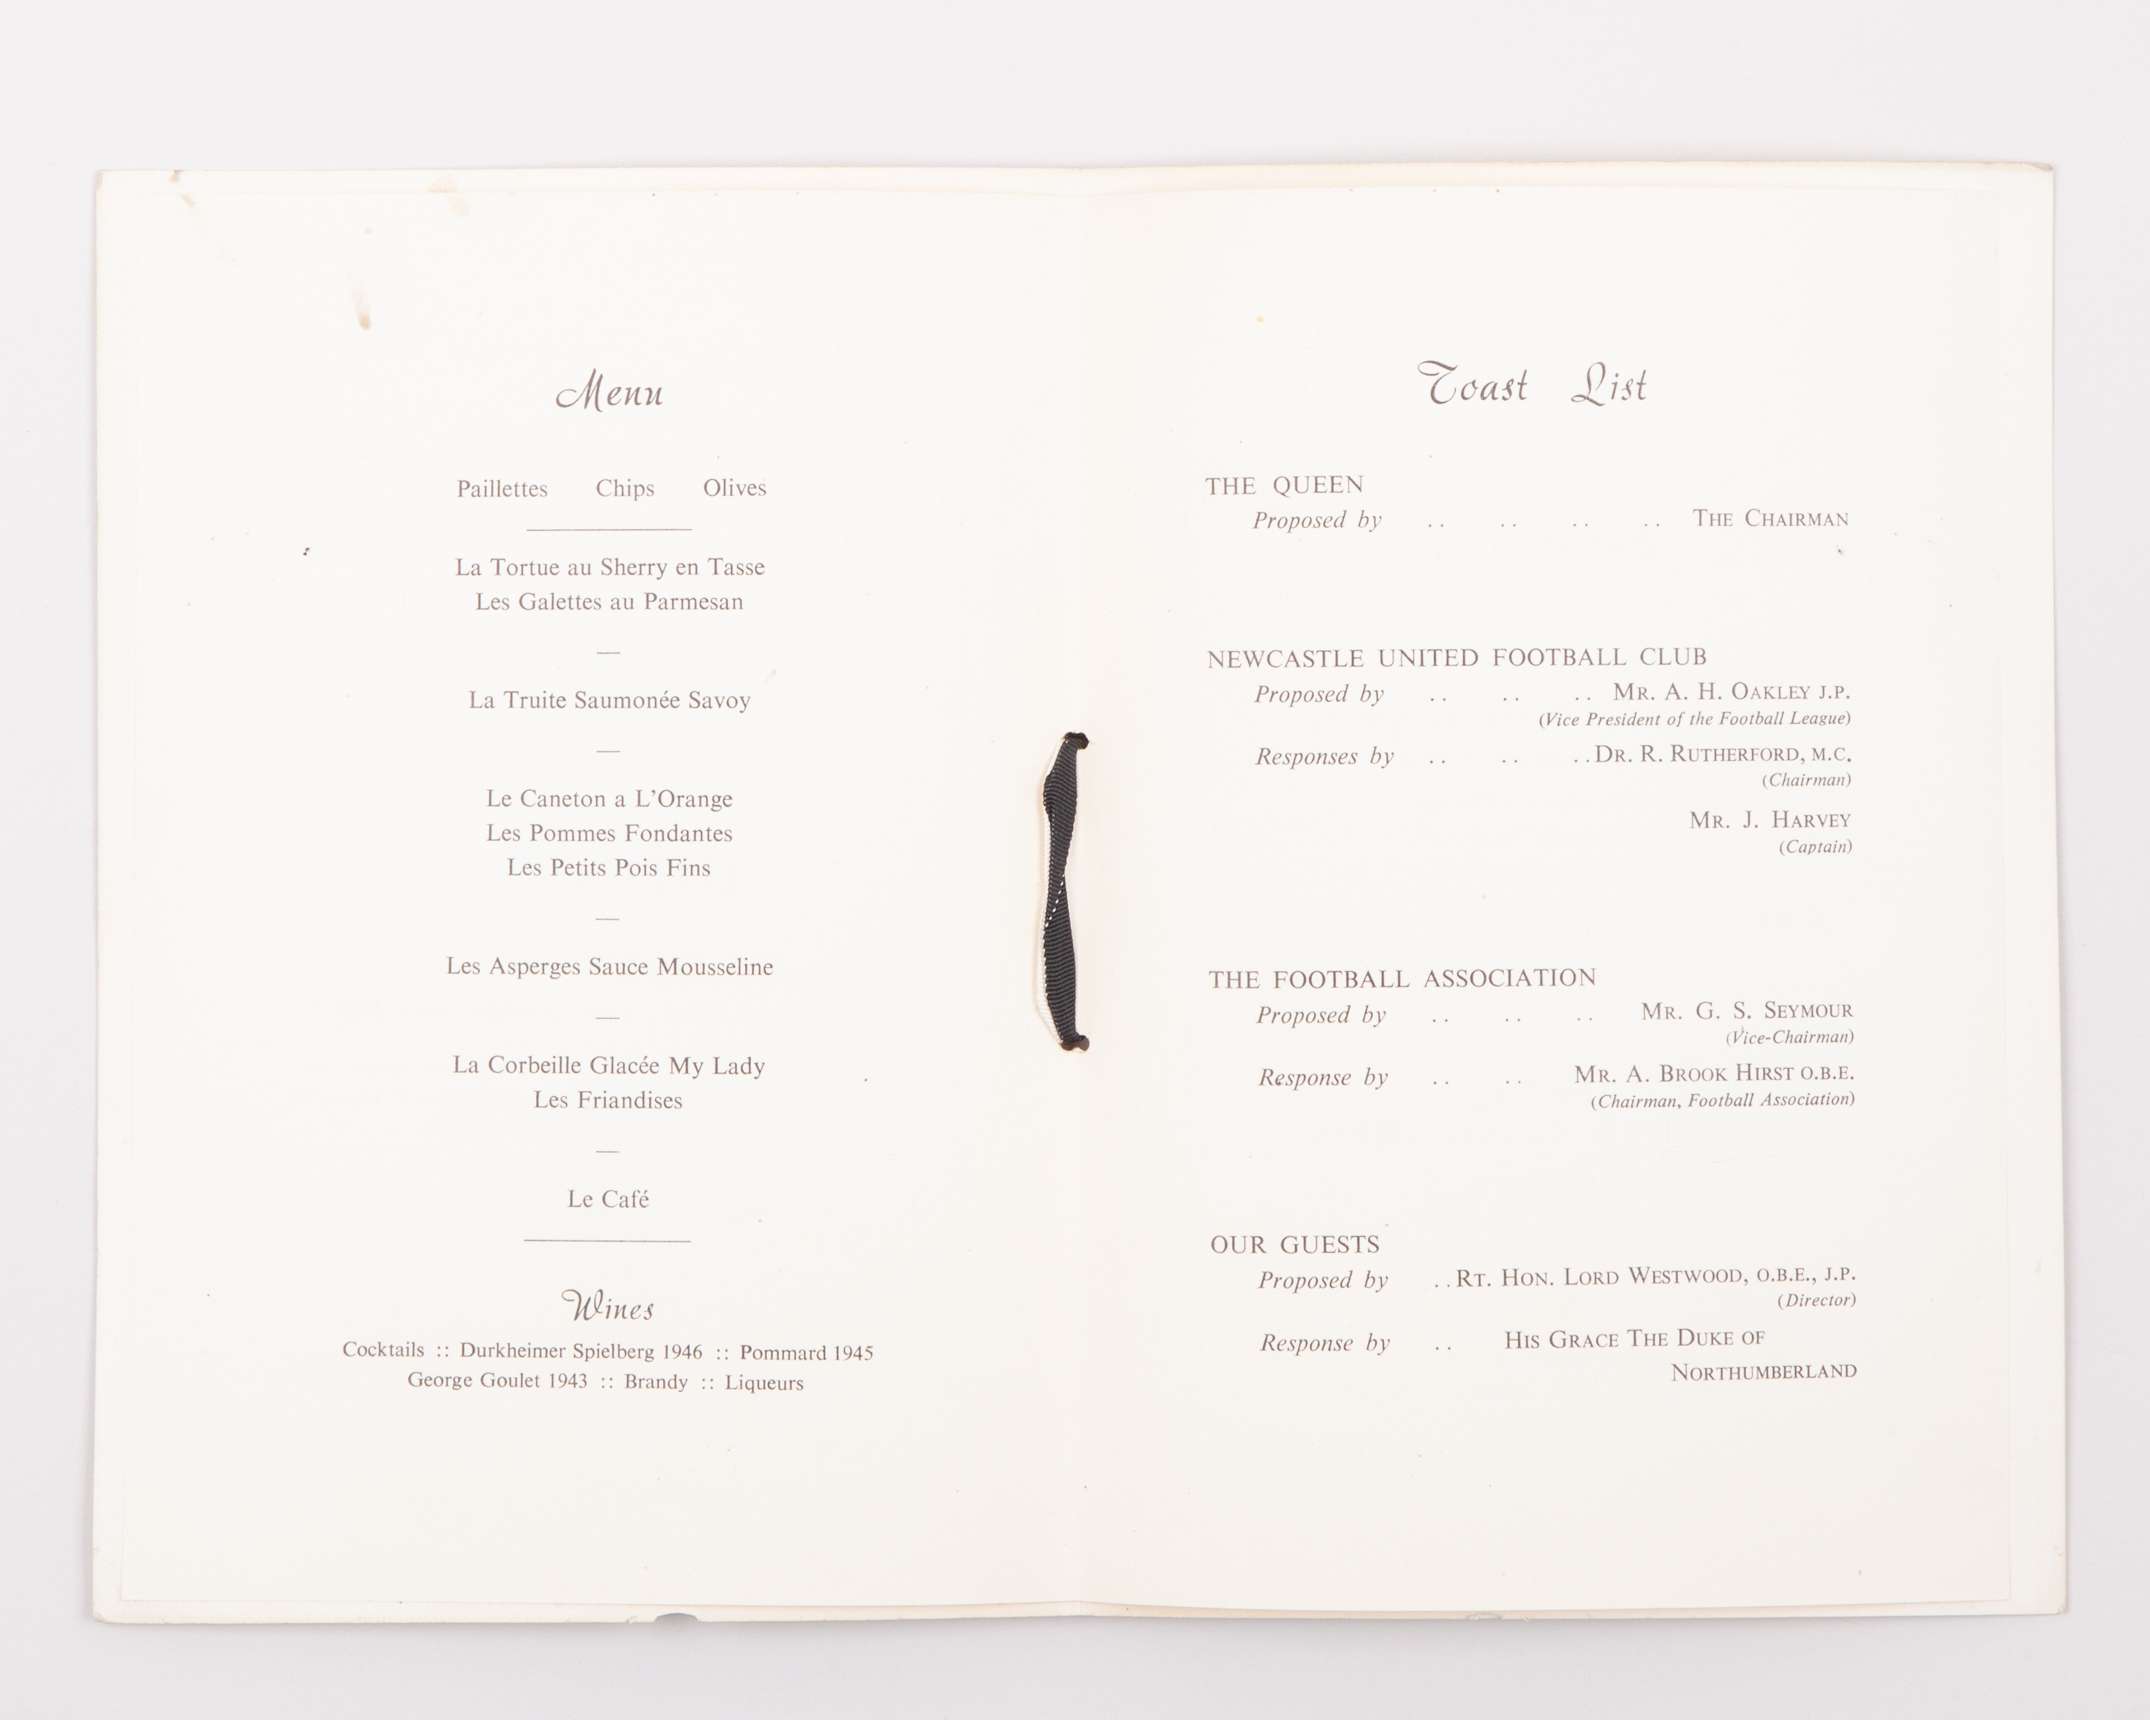 Menu
Paillettes Chips Olives
La Tortue au Sherry en Tasse
Les Galettes au Parmesan
La Truite Saumonée Savoy
Le Caneton a L'Orange
Les Pommes Fondantes
Les Petits Pois Fins
Les Asperges Sauce Mousseline
La Corbeille Glacée My Lady
Les Friandises
Le Café
Wines
Cocktails :: Durkheimer Spielberg 1946 :: Pommard 1945
George Goulet 1943 :: Brandy :: Liqueurs
Toast List
THE QUEEN
Proposed by .. .. .. .. THE CHAIRMAN
NEWCASTLE UNITED FOOTBALL CLUB
Proposed by .. .. .. MR. A. H. OAKLEY J.P.
(Vice President of the Football League)
Responses by .. .. ..DR. R. RUTHERFORD, M.C.
(Chairman)
MR. J. HARVEY
(Captain)
THE FOOTBALL ASSOCIATION
Proposed by .. .. .. MR. G. S. SEYMOUR
(Vice-Chairman)
Response by .. .. MR. A. BROOK HIRST O.B.E.
(Chairman, Football Association)
OUR GUESTS
Proposed by ..RT. HON. LORD WESTWOOD, O.B.E., J.P.
(Director)
Response by .. HIS GRACE THE DUKE OF
NORTHUMBERLAND